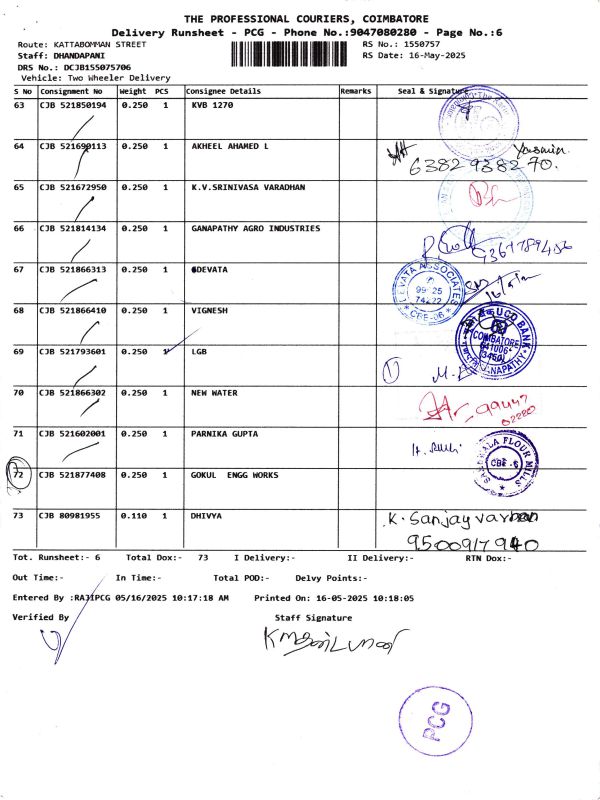 THE PROFESSIONAL COURIERS, COIMBATORE
Delivery Runsheet - PCG - Phone No.:9047080280 - Page No.:6
Route: KATTABOMMAN STREET RS No.: 1550757
Staff: DHANDAPANI RS Date: 16-May-2025
DRS No.: DCJB155075706
Vehicle: Two Wheeler Delivery
S No Consignment No Weight PCS Consignee Details Remarks Seal & Signature
63 CJB 521850194 0.250 1 KVB 1270
64 CJB 521690113 0.250 1 AKHEEL AHAMED L Yasmin
6382938270.
65 CJB 521672950 0.250 1 K.V.SRINIVASA VARADHAN
66 CJB 521814134 0.250 1 GANAPATHY AGRO INDUSTRIES
67 CJB 521866313 0.250 1 DEVATA LEVATA ASSOCIATES
99 25
74272
CBE-06
68 CJB 521866410 0.250 1 VIGNESH UCO BANK
COIMBATORE
641006
69 CJB 521793601 0.250 1 LGB
70 CJB 521866302 0.250 1 NEW WATER 99447
02280
71 CJB 521602001 0.250 1 PARNIKA GUPTA
FLOUR MILLS
CBE - 6
72 CJB 521877408 0.250 1 GOKUL ENGG WORKS
73 CJB 80981955 0.110 1 DHIVYA K. Sanjay vardhan
9500917940
Tot. Runsheet:- 6 Total Dox:- 73 I Delivery:- II Delivery:- RTN Dox:-
Out Time:- In Time:- Total POD:- Delvy Points:-
Entered By :RAJIPCG 05/16/2025 10:17:18 AM Printed On: 16-05-2025 10:18:05
Verified By Staff Signature
PCG